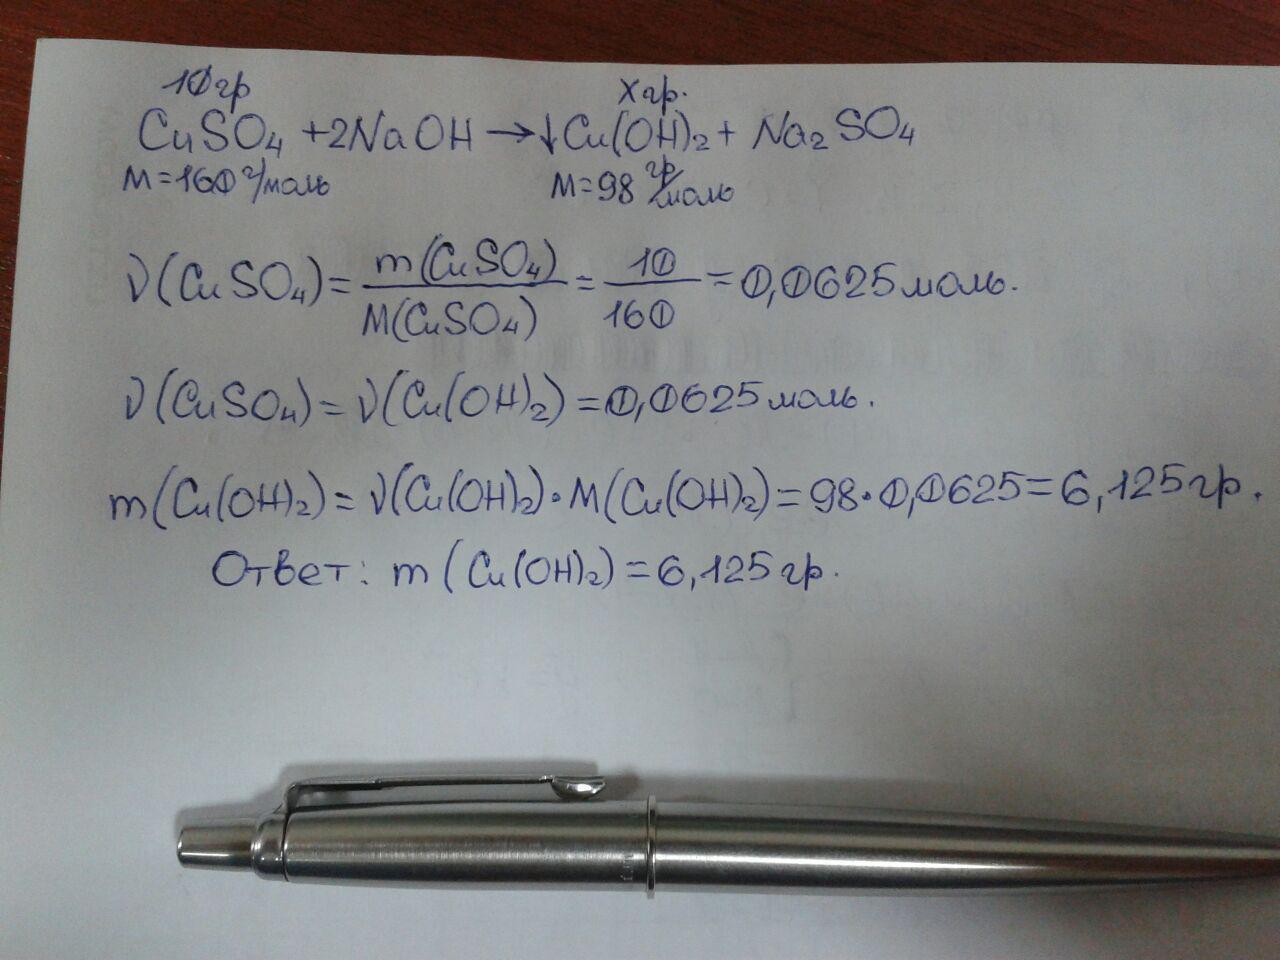 10гр Xгр.
CuSO₄ + 2NaOH → ↓Cu(OH)₂ + Na₂SO₄
M=160 г/моль M=98 гр/моль
ν(CuSO₄) = m(CuSO₄)/M(CuSO₄) = 10/160 = 0,0625 моль.
ν(CuSO₄) = ν(Cu(OH)₂) = 0,0625 моль.
m(Cu(OH)₂) = ν(Cu(OH)₂)·M(Cu(OH)₂) = 98·0,0625 = 6,125 гр.
Ответ: m(Cu(OH)₂) = 6,125 гр.